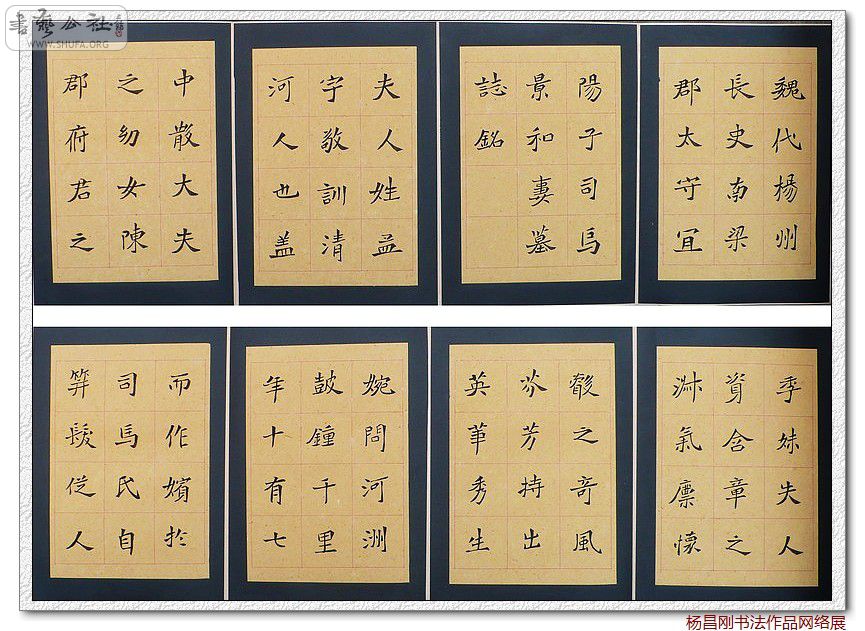 書藝公社
WWW.SHUFA.ORG
魏代楊州
長史南梁
郡太守宜
陽子司馬
景和妻墓
誌銘
夫人姓孟
字敬訓清
河人也盖
中散大夫
之幼女陳
郡府君之
季妹夫人
資含章之
淑氣廪懷
叡之奇風
芬芳特出
英華秀生
婉問河洲
鼓鐘千里
年十有七
而作嬪於
司馬氏自
笄髮從人
杨昌刚书法作品网络展